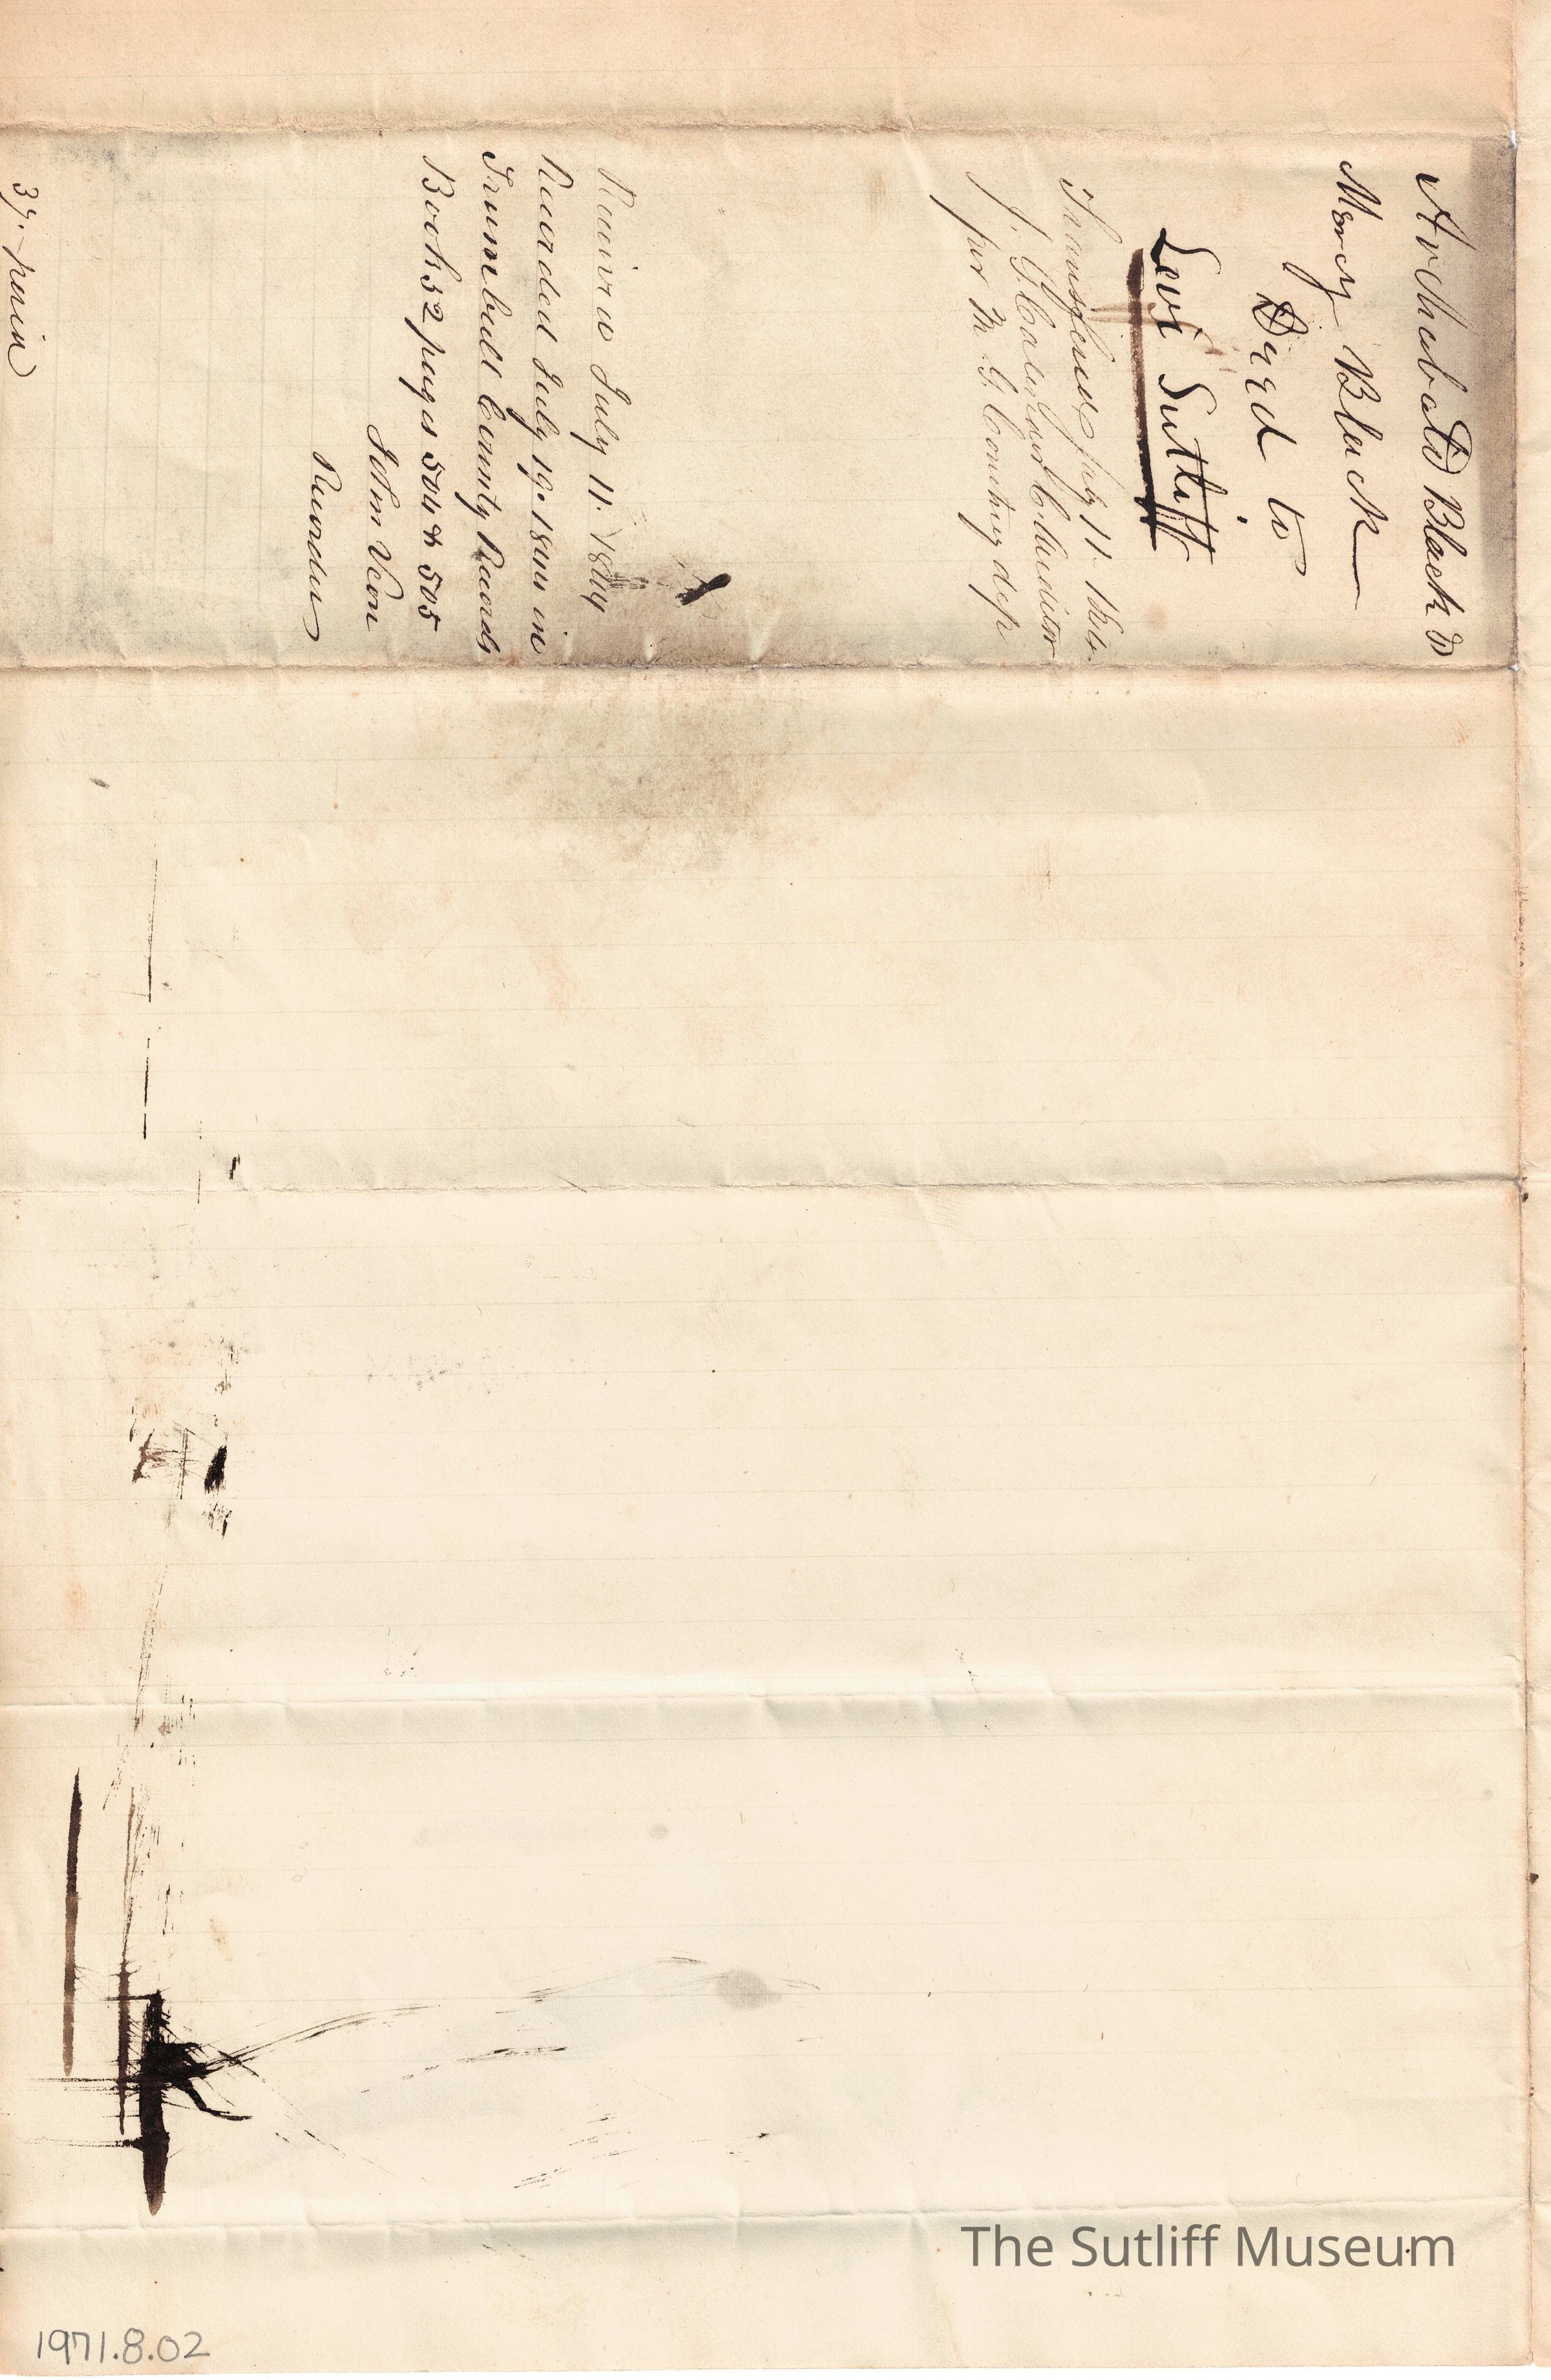 Archabald Black &
Mercy Black
Deed to
Levi Sutliff
Transfered July 11. 1844.
Auditor
per M. G. dep
Received July 11. 1844
Recorded July 19. 1844 in
Trumbull County Records
Book 52 pages 504 & 505
John Veon
Recorder
The Sutliff Museum
1971.8.02